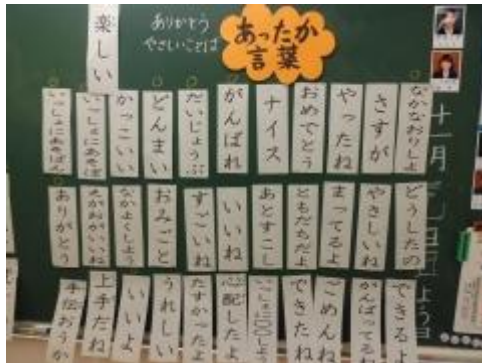 あったか
言葉
ありがとう
やさしいことば
楽しい
なかなおりしよ
さすが
やったね
おめでとう
ナイス
がんばれ
だいじょうぶ
どんまい
かっこいい
いっしょにあそぼ
いっしょにあそぼ
どうしたの
やさしいね
まってるよ
ともだちだよ
あとすこし
いいね
すごいね
おみごと
なかよくしよう
えがおがいいね
ありがとう
できる
がんばってる
ごめんね
できたね
心配したよ
たすかったよ
うれしい
いいよ
上手だね
手伝おうか
十一月